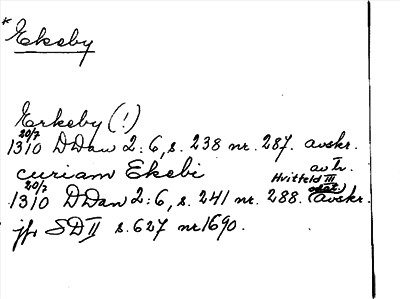 * Ekeby
Erkeby (!)
20/7
1310 DDan 2:6, s. 238 nr. 287. avskr.
curiam Ekebi
av Tr.
Hvitfeld III
20/7
1310 DDan 2:6, s. 241 nr. 288. (avskr.
jfr SD II s. 627 nr 1690.